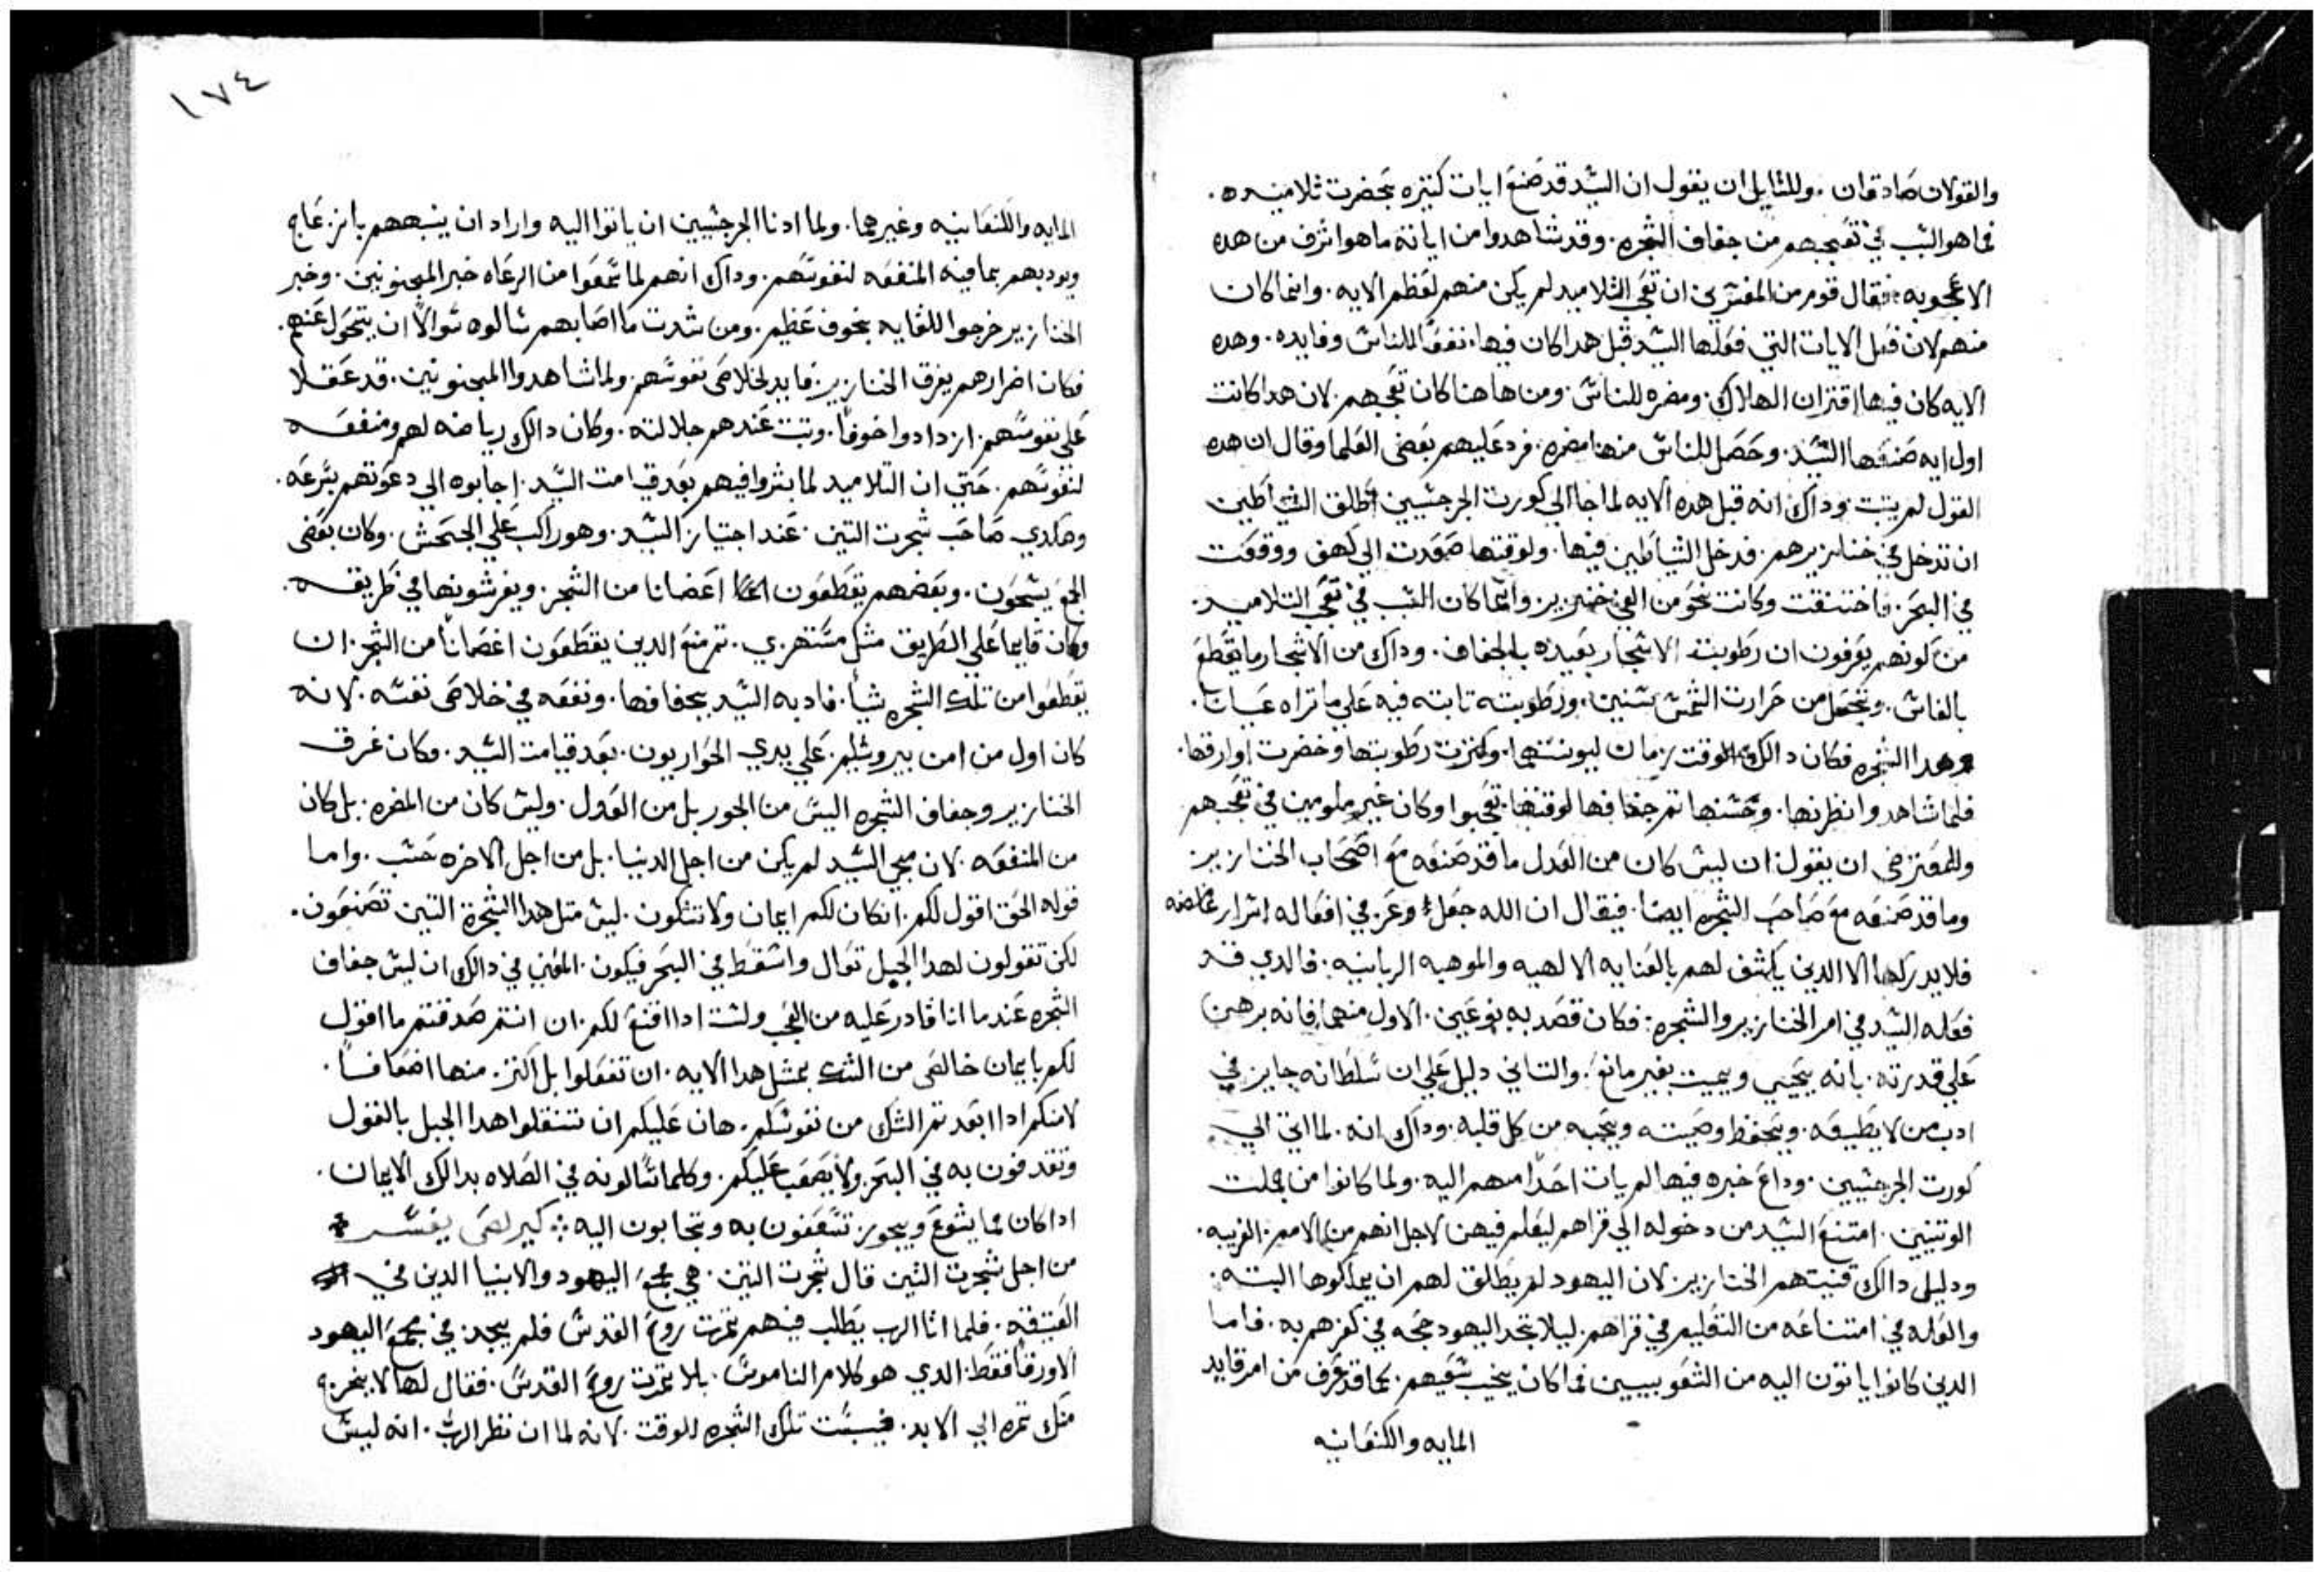 والقولان صادقان . وللقايل ان يقول ان السيد قد صنع ايات كتيره بحضرت تلاميده .
فما هو السبب في تعجبهم من جفاف الشجره . وقد شاهدوا من اياته ما هو اشرف من هده
الاعجوبه . فقال قوم من المفسرين ان تعجب التلاميد لم يكن منهم لعظم الايه . وانما كان
منهم لان قبل الايات التي فعلها السيد قبل هدا كان فيها نفعا للناس وفايده . وهده
الايه كان فيها اقتران الهلاك . ومضره للناس . ومن هاهنا كان تعجبهم . لان هدا كانت
اول ايه صنعها السيد . وحصل للناس منها مضره . فرد عليهم بعض العلما وقال ان هده
القول لم يتبت . وداك انه قبل هده الايه لما جا الي كورت الجرجسيين اطلق الشياطين
ان تدخل في خنازيرهم . فدخل الشياطين فيها . ولوقتها صعدت الي كهف ووقعت
في البحر . فاختنقت وكانت نحو من الفي خنزير . وانما كان السبب في تعجب التلاميد .
من كونهم يعرفون ان رطوبت الاشجار بعيده بالجفاف . وداك من الاشجار ما يقطع
بالفاس . ويتحمل من حرارت الشمس سنين . ورطوبته تابته فيه علي ما تراه عيانا .
وهدا الشجره فكان دالك الوقت زمان ليونتها . وكترت رطوبتها وخضرت اوراقها .
فلما شاهدوا نظرتها . وحسنها تم جفافها لوقتها . تعجبوا وكان غير ملومين في تعجبهم
وللمعترض ان يقول ان ليس كان من العدل ما قد صنعه مع اصحاب الخنازير .
وما قد صنعه مع صاحب الشجره ايضا . فيقال ان الله جعل وعز في افعاله اسرار غامضه
فلا يدركها الا الدين يكشف لهم بالعنايه الالهيه والموهبه الربانيه . فالدي قد
فعله السيد في امر الخنازير والشجره : فكان قصد به نوعين . الاول منهما فانه برهن
علي قدرته . بانه يحيي ويميت بغير مانع . والتاني دليل علي ان سلطانه جايز في
ادب من لا يطيعه . ويحفظ وصيته ويحبه من كل قلبه . وداك انه . لما اتي الي
كورت الجرجسيين . وداع خبره فيها لم يات احدا منهم اليه . ولما كانوا من جملت
الوتنيين . امتنع السيد من دخوله الي قراهم ليعلم فيهن لاجل انهم من الامم الغريبه .
ودليل دالك قنيتهم الخنازير . لان اليهود لم يطلق لهم ان يملكوها البته .
والعله في امتناعه من التعليم في قراهم . ليلا تجد اليهود حجه في كفرهم به . فاما
الدين كانوا ياتون اليه من الشعوبيين فما كان يخيب سعيهم . كما قد عرف من امر قايد
المايه والكنعانيه
١٧٤
المايه والكنعانيه وغيرهما . ولما ادنا الجرجسيين ان ياتوا اليه واراد ان ينبههم بانزعاج
ويودبهم بما فيه المنفعه لنفوسهم . وداك انهم لما سمعوا من الرعاه خبر المجنونين . وخبر
الخنازير خرجوا للقايه بخوف عظيم . ومن شدت ما اصابهم سالوه سوالا ان يتحول عنهم .
فكان اضرارهم بغرق الخنازير . فايد لخلاص نفوسهم . ولما شاهدوا المجنونين . قد عقلا
علي نفوسهم . ازدادوا خوفا . وتبت عندهم جلالته . وكان دالك رياضه لهم ومنفعه
لنفوسهم . حتي ان التلاميد لما بشروا فيهم بعد قيامت السيد . اجابوه الي دعوتهم بسرعه .
وهكدي صاحب شجرت التين . عند اجتياز السيد . وهو راكب علي الجحش . وكان بعض
الجمع يسبحون . وبعضهم يقطعون اغصانا من الشجر . ويفرشونها في طريقه .
وكان قايما علي الطريق مثل مستهزي . تم منع الدين يقطعون اغصانا من الشجر . ان
يقطعوا من تلك الشجره شيا . فادبه السيد بجفافها . ونفعه في خلاص نفسه . لانه
كان اول من امن بيروشليم . علي يدي الحواريون . بعد قيامت السيد . وكان غرق
الخنازير وجفاف الشجره اليس من الجور بل من العدل . وليس كان من المضره . بل كان
من المنفعه . لان مجي السيد لم يكن من اجل الدنيا . بل من اجل الاخره حسب . واما
قوله الحق اقول لكم . ان كان لكم ايمان ولا تشكون . ليس متل هدا الشجرة التين تصنعون .
لكن تقولون لهدا الجبل تعال واسقط في البحر فيكون . المعني في دالك ان ليس جفاف
الشجره عندما انا قادر عليه من العجب ولست ادا اقنع لكم . ان انتم صدقتم ما اقول
لكم بايمان خالص من الشك بمتل هدا الايه . ان تفعلوا بل اكتر . منها اضعافا .
لانكم ادا ابعدتم الشك من نفوسكم . هان عليكم ان تنقلوا هدا الجبل بالقول
وتقدفون به في البحر . ولا يصعب عليكم . وكلما تسالونه في الصلاه بدالك الايمان .
ادا كان مما يشوع ويجوز تسعفون به وتجابون اليه : كيرلص يفسر
من اجل شجرت التين قال شجرت التين . هي مجمع اليهود والانبيا الدين في
العتيقه . فلما اتا الرب يطلب فيهم تمرت روح القدس فلم يجد في مجمع اليهود
الا ورقا فقط . الدي هو كلام الناموس . بلا تمرت روح القدس . فقال لها لا يخرج
منك تمره الي الابد . فيبست تلك الشجره للوقت . لانه لما ان نظر الرب . انه ليس